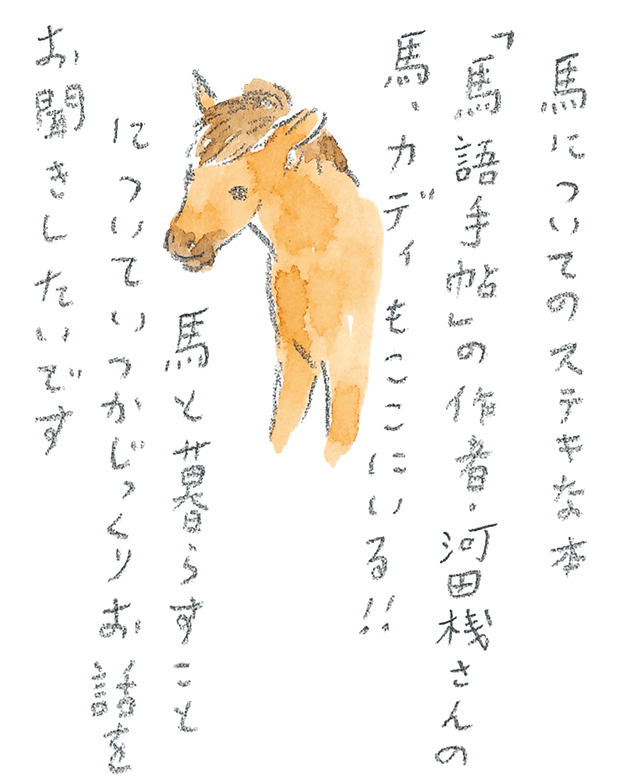 馬についてのステキな本
「馬語手帖」の作者・河田桟さんの
馬、カディもここにいる!!
馬と暮らすこと
についていつかじっくりお話を
お聞きしたいです